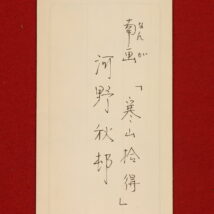 南画「寒山拾得」
なんが
河野秋邨